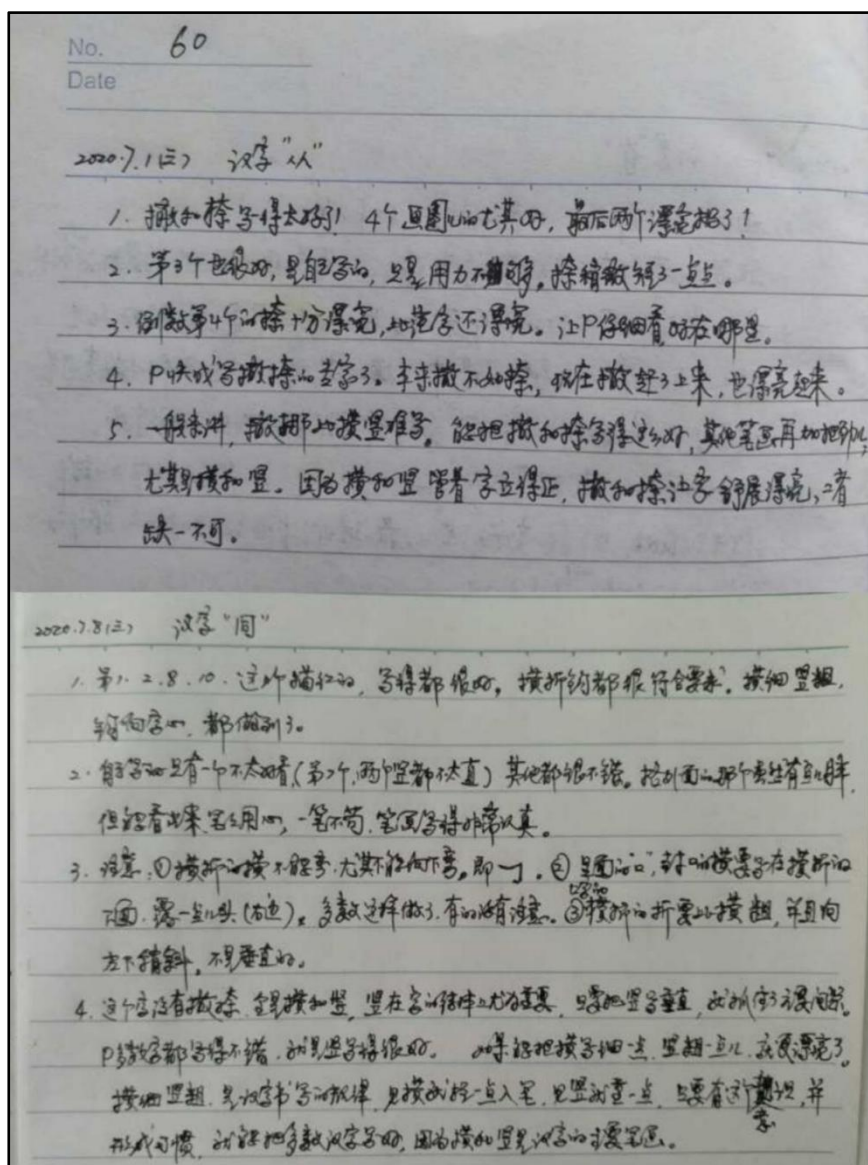 No. 60
Date
2020.7.1(三) 汉字“从”
1. 撇和捺写得太好了! 4个画圈儿的尤其好, 最后两个漂亮极了!
2. 第3个也很好, 是自己写的, 只是用力不够。捺稍微短了一点点。
3. 倒数第4个的捺十分漂亮, 比范字还漂亮。让P仔细看, 好在哪里。
4. P快成写撇捺的专家了。本来撇不如捺, 现在撇赶了上来, 也漂亮起来。
5. 一般来讲, 撇捺比横竖难写。能把撇和捺写得这么好, 其他笔画再加把劲儿,
尤其是横和竖。因为横和竖管着字立得正, 撇和捺让字舒展漂亮, 二者
缺一不可。
2020.7.8(三) 汉字“间”
1. 第1. 2. 8. 10. 这个描红的, 写得都很好。横折钩都很符合要求。横细竖粗,
钩向字心, 都做到了。
2. 自己写的只有一个不太好看,(第7个, 两个竖都不太直) 其他都很不错。
但能看出来写的用心, 一笔不苟, 笔画写得非常认真。
3. 注意, ①横折的横不能弯, 尤其不能向下弯。即㇆。②里面的“口”, 封口的横要写在横折的
下面, 露一点儿头(右边)。多数这样做了, 有的没有注意。③横折的折要比横粗, 并且向
左下稍斜, 不是垂直的。
4. 这个字没有撇捺, 全是横和竖, 竖在字的结体上尤为重要, 只要把竖写垂直, 就抓住了主要问题。
P多数字都写得不错, 就是竖写得很好。如果能把横写细一点, 竖粗一点儿, 就更漂亮了。
横细竖粗, 是汉字书写的规律, 见横就轻一点入笔, 见竖就重一点, 只要有这个意识, 并
形成习惯, 就能把多数汉字写好, 因为横和竖是汉字的主要笔画。